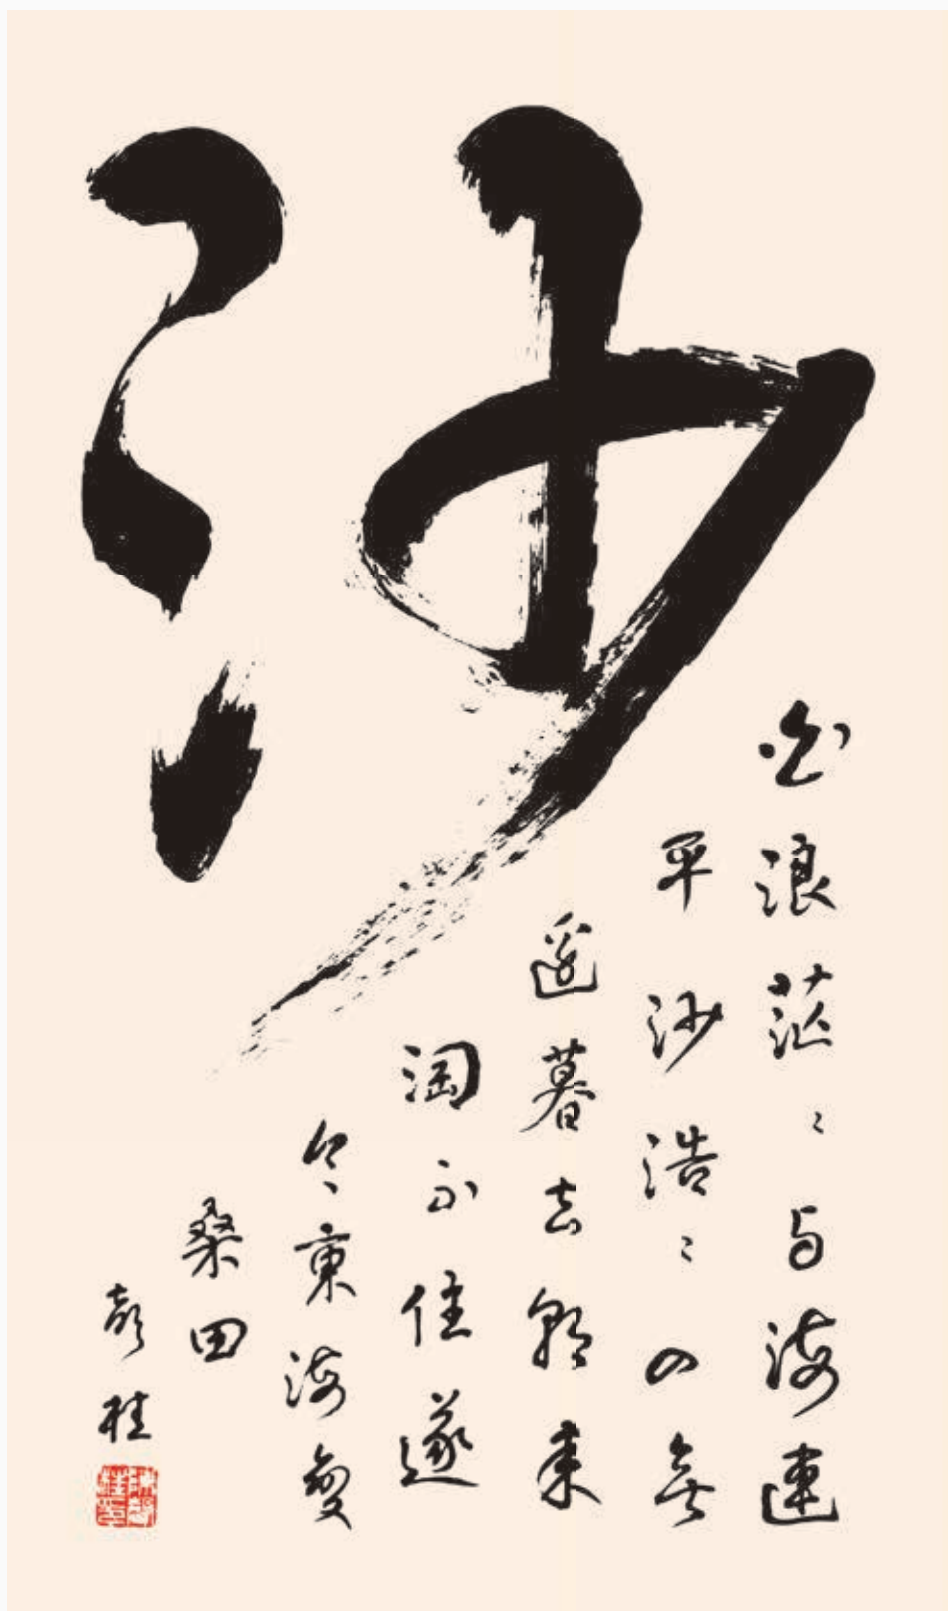 沙
白浪茫〻与海連
平沙浩〻四無
邊暮去朝来
淘不住遂
令東海變
桑田
彭桂